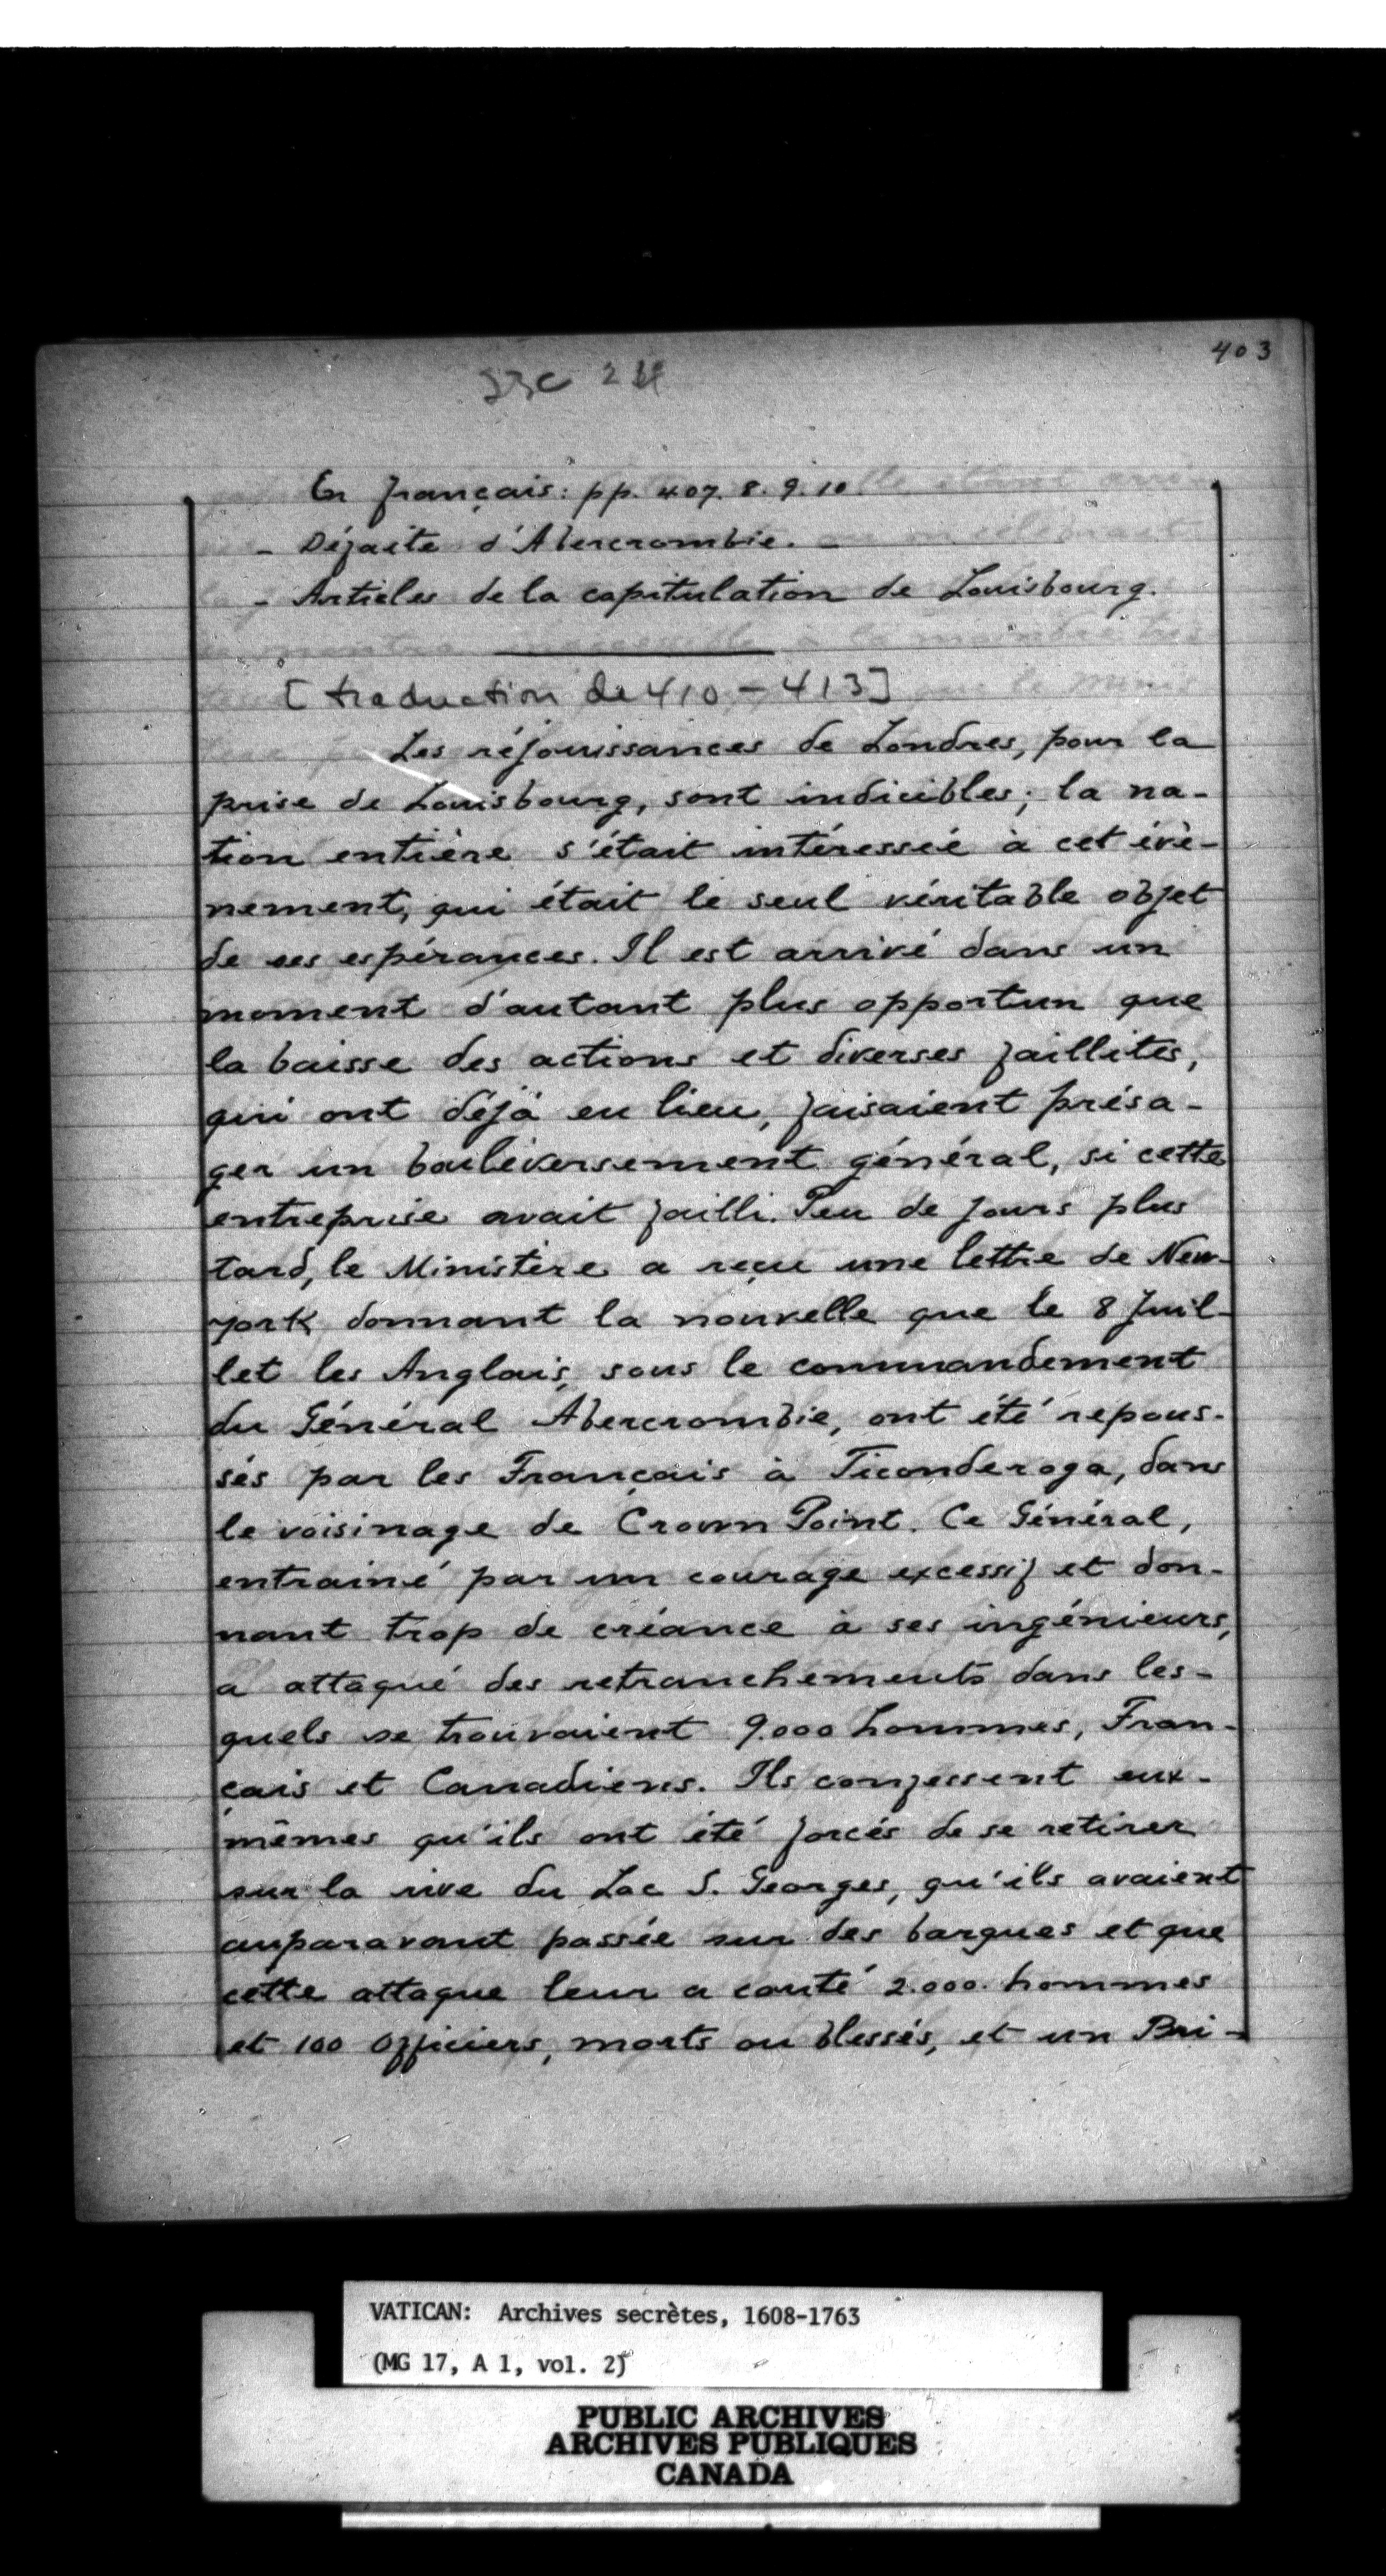 403
En français: pp. 407. 8. 9. 10.
- Défaite d'Abercrombie. -
- Articles de la capitulation de Louisbourg.
[traduction de 410 - 413]
Les réjouissances de Londres, pour la
prise de Louisbourg, sont indicibles; la na-
tion entière s'était intéressée à cet évè-
nement, qui était le seul véritable objet
de ses espérances. Il est arrivé dans un
moment d'autant plus opportun que
la baisse des actions et diverses faillites,
qui ont déjà eu lieu, faisaient présa-
ger un bouleversement général, si cette
entreprise avait failli. Peu de jours plus
tard, le Ministère a reçu une lettre de New-
york donnant la nouvelle que le 8 Juil-
let les Anglais, sous le commandement
du Général Abercrombie, ont été repous-
sés par les Français à Ticonderoga, dans
le voisinage de Crown Point. Ce Général,
entrainé par un courage excessif et don-
nant trop de créance à ses ingénieurs,
a attaqué des retranchements dans les-
quels se trouvaient 9.000 hommes, Fran-
çais et Canadiens. Ils confessent eux-
mêmes qu'ils ont été forcés de se retirer
sur la rive du Lac S. Georges, qu'ils avaient
auparavant passée sur des barques et que
cette attaque leur a couté 2.000 hommes
et 100 Officiers, morts ou blessés, et un Bri-
VATICAN: Archives secrètes, 1608-1763
(MG 17, A 1, vol. 2)
PUBLIC ARCHIVES
ARCHIVES PUBLIQUES
CANADA